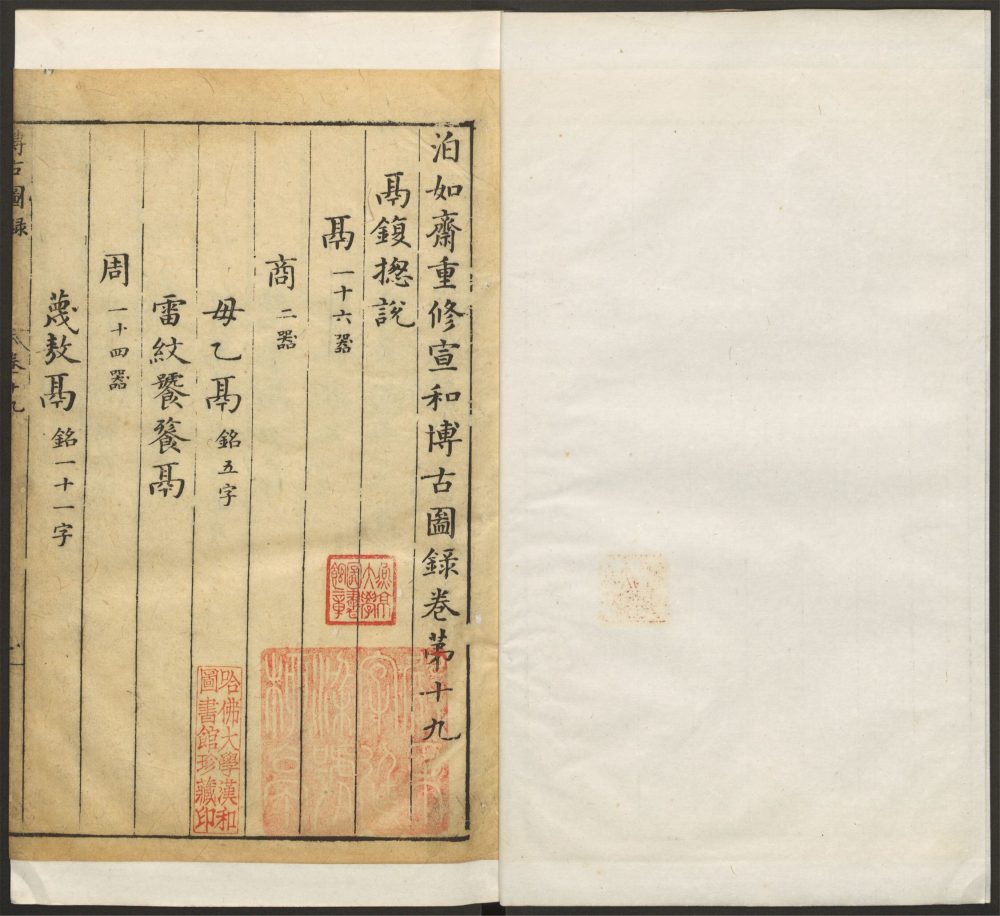 泊如齋重修宣和博古圖錄卷第十九
鬲鍑揔說
鬲 一十六器
商 二器
毋乙鬲 銘五字
雷紋饕餮鬲
周 一十四器
蔑敖鬲 銘一十一字
博古圖錄
卷十九
哈佛大學漢和
圖書館珍藏印